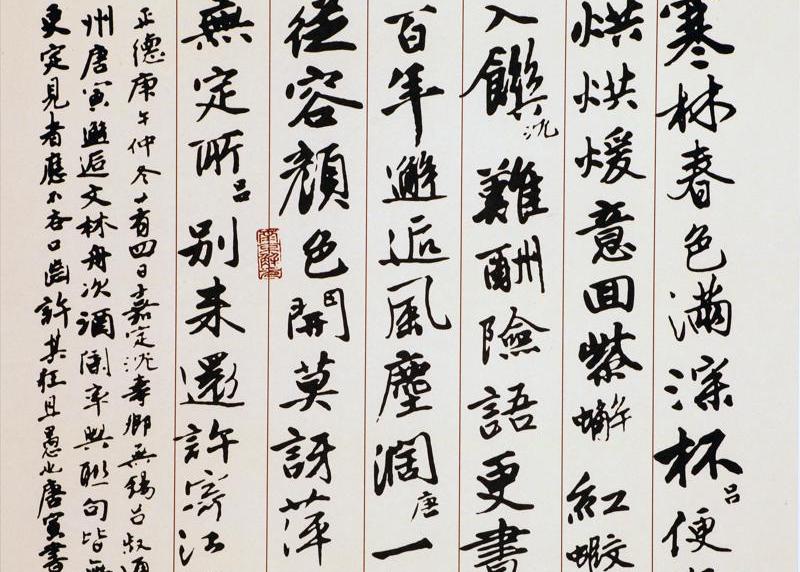 寒林春色滿深杯呂便
烘烘煖意回紫蠏紅蝦
入饌沈難酬險語更書
百年邂逅風塵濶唐一
從容顏色開莫訝萍
無定所呂別來還許寄江
正德庚午仲冬十有四日嘉定沈壽卿無錫呂叔通
州唐寅邂逅文林舟次酒闌率興聯句皆無
更定見者應不吝口齒許其狂且愚也唐寅書